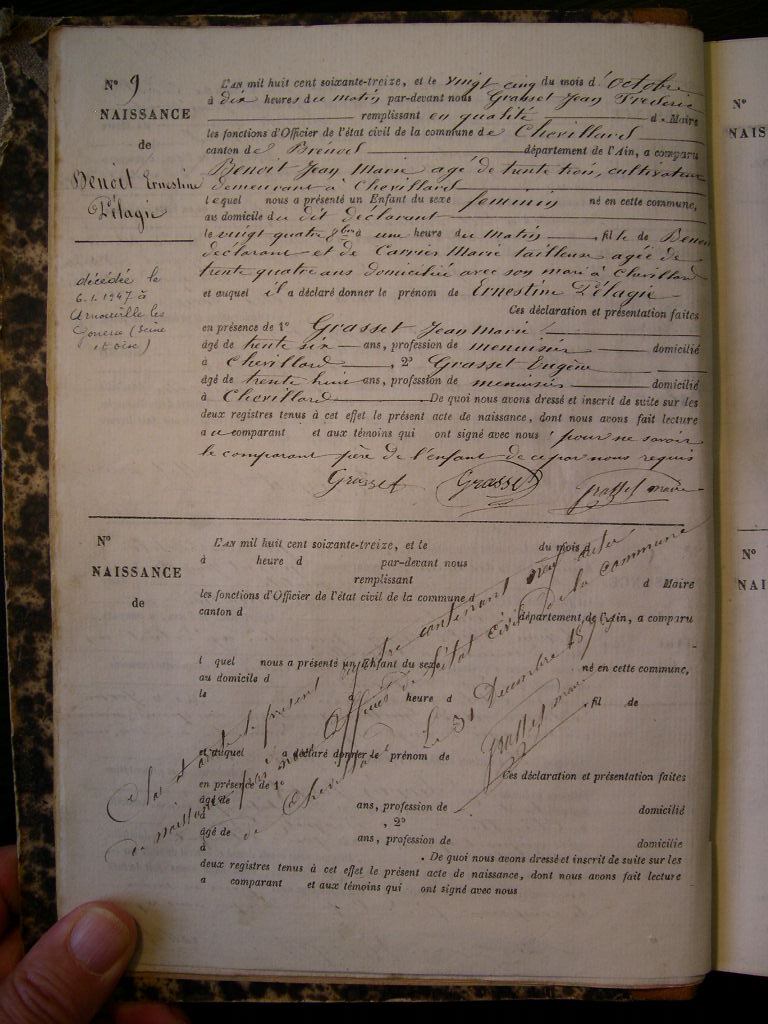 N° 9
NAISSANCE
de
Benoît Ernestine
Pélagie
décédée le
6.1.1947 à
Arnouville les
Gonesse (Seine
et Oise)
L'AN mil huit cent soixante-treize, et le vingt cinq du mois d'octobre
à dix heures du matin par-devant nous Grasset Jean Frédéric
remplissant en qualité de Maire
les fonctions d'Officier de l'état civil de la commune de Chevillard
canton de Brénod département de l'Ain, a comparu
Benoit Jean Marie agé de trente trois, cultivateur
demeurant à Chevillard
lequel nous a présenté un Enfant du sexe feminin né en cette commune,
au domicile du dit déclarant
le vingt quatre 8bre à une heure du matin fille de Benoit
déclarant et de Carrier Marie tailleuse agée de
trente quatre ans domiciliée avec son mari à Chevillard
et auquel il a déclaré donner le prénom de Ernestine Pélagie
Ces déclaration et présentation faites
en présence de 1° Grasset Jean Marie
âgé de trente six ans, profession de menuisier domicilié
à Chevillard, 2° Grasset Eugène
âgé de trente huit ans, profession de menuisier domicilié
à Chevillard De quoi nous avons dressé et inscrit de suite sur les
deux registres tenus à cet effet le présent acte de naissance, dont nous avons fait lecture
au comparant et aux témoins qui ont signé avec nous pour ne savoir
le comparant père de l'enfant de ce par nous requis
Grasset Grasset Grasset maire
N°
NAISSANCE
de
L'AN mil huit cent soixante-treize, et le du mois d
à heure d par-devant nous
remplissant d Maire
les fonctions d'Officier de l'état civil de la commune d
canton d département de l'Ain, a comparu
l quel nous a présenté un Enfant du sexe né en cette commune,
au domicile d
le heure d fil de
et auquel a déclaré donner le prénom de
Ces déclaration et présentation faites
en présence de 1°
âgé de ans, profession de domicilié
à , 2°
âgé de ans, profession de domicilié
à . De quoi nous avons dressé et inscrit de suite sur les
deux registres tenus à cet effet le présent acte de naissance, dont nous avons fait lecture
a comparant et aux témoins qui ont signé avec nous
le présent registre contenant neuf actes
de naissance par nous Officier de l'état civil de la commune
de Chevillard le 31 Decembre 1873
Grasset maire
N°
NAIS
N°
NAI